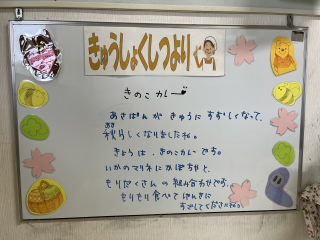 きゅうしょくしつより
きのこカレー
あさばんが きゅうに すずしくなって、
あき
秋らしくなりましたね。
きょうは、きのこカレーです。
いかのマリネにかぼちゃと
もりだくさんの 組み合わせです。
もりもり食べて げんきに
すごしてくださいね。